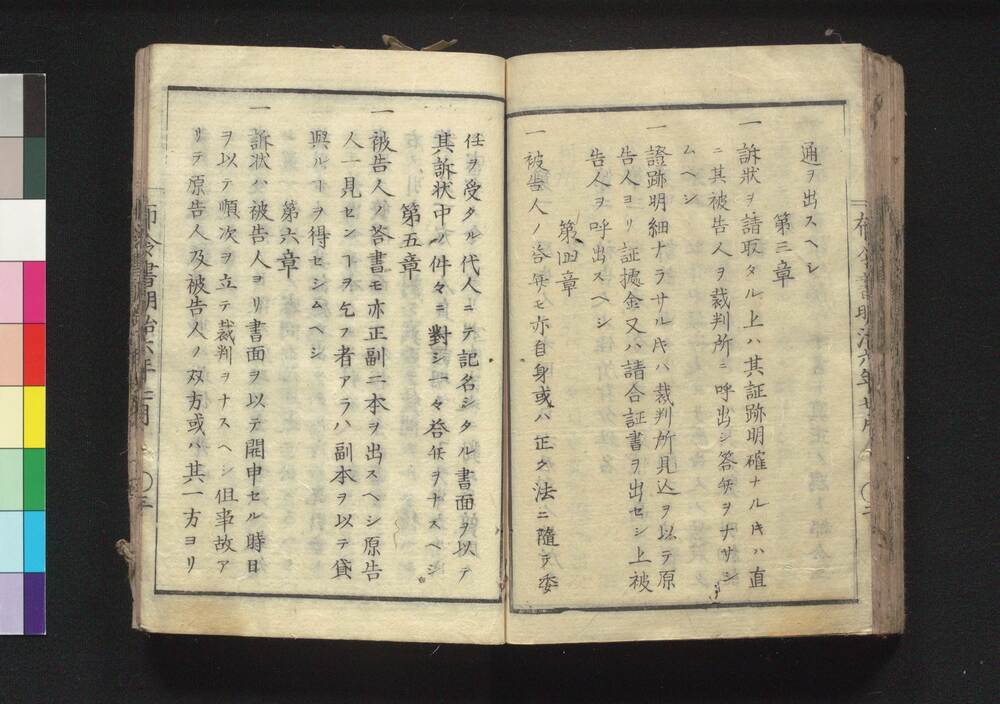 通ヲ出スヘシ
第三章
一 訴狀ヲ請取タル上ハ其証跡明確ナルキハ直
ニ其被告人ヲ裁判所ニ呼出シ答弁ヲナサシ
ムヘシ
一 證跡明細ナラサルキハ裁判所見込ヲ以テ原
告人ヨリ証據金又ハ請合証書ヲ出セシ上被
告人ヲ呼出スヘシ
第四章
一 被告人ノ答弁モ亦自身或ハ正ク法ニ隨テ委
任ヲ受タル代人ニテ記名シタル書面ヲ以テ
其訴狀中ノ件々ニ對シ一々答弁ヲナスヘシ
第五章
一 被告人ノ答書モ亦正副二本ヲ出スヘシ原告
人一見センヿヲ乞フ者アラハ副本ヲ以テ貸
與ルヿヲ得セシムヘシ
第六章
一 訴狀ハ被告人ヨリ書面ヲ以テ開申セル時日
ヲ以テ順次ヲ立テ裁判ヲナスヘシ但事故ア
リテ原告人及被告人ノ双方或ハ其一方ヨリ